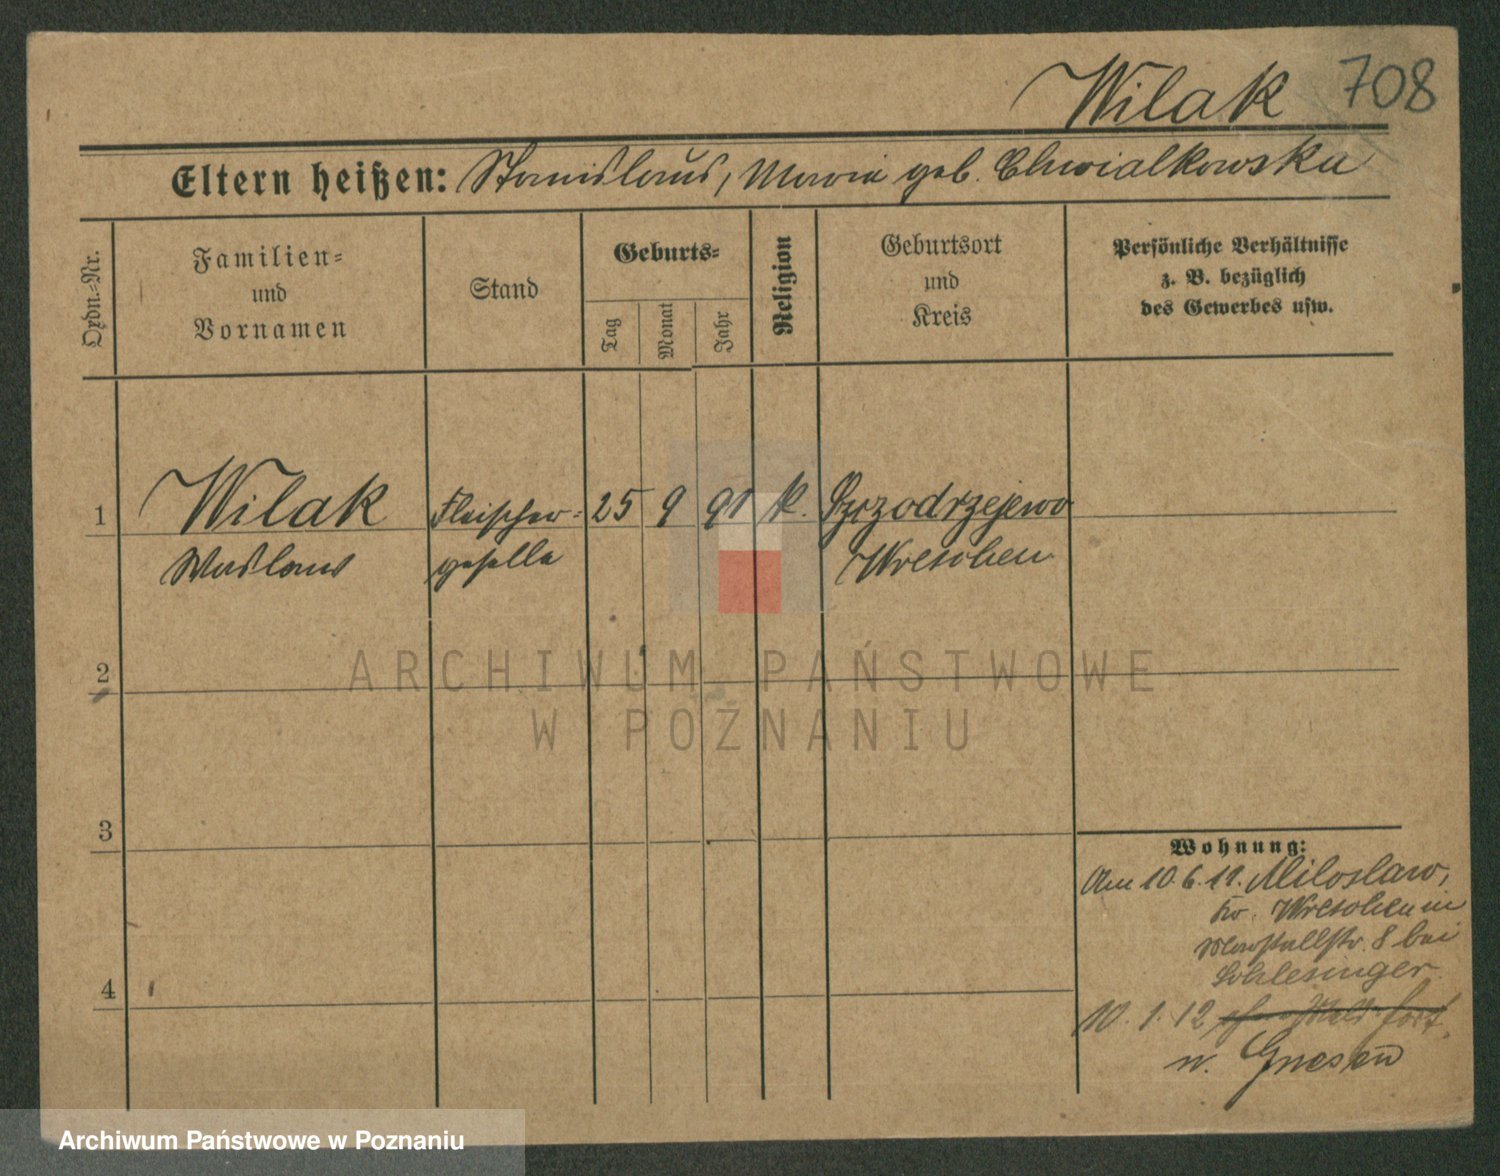 Wilak 708
Eltern heißen: Stanislaus, Maria geb. Chwialkowska
Ordn.-Nr.
Familien-
und
Vornamen
Stand
Geburts-
Tag
Monat
Jahr
Religion
Geburtsort
und
Kreis
Persönliche Verhältnisse
z. B. bezüglich
des Gewerbes usw.
1 Wilak Fleischer- 25 9 91 k. Szrzodrzejewo
Wladislaus geselle Wreschen
2
ARCHIWUM PAŃSTWOWE
W POZNANIU
3
4
Wohnung:
Am 10.6.11. Miloslaw,
Kr. Wreschen in
8 bei
Schlesinger
10.1.12 fort
n. Gnesen
Archiwum Państwowe w Poznaniu